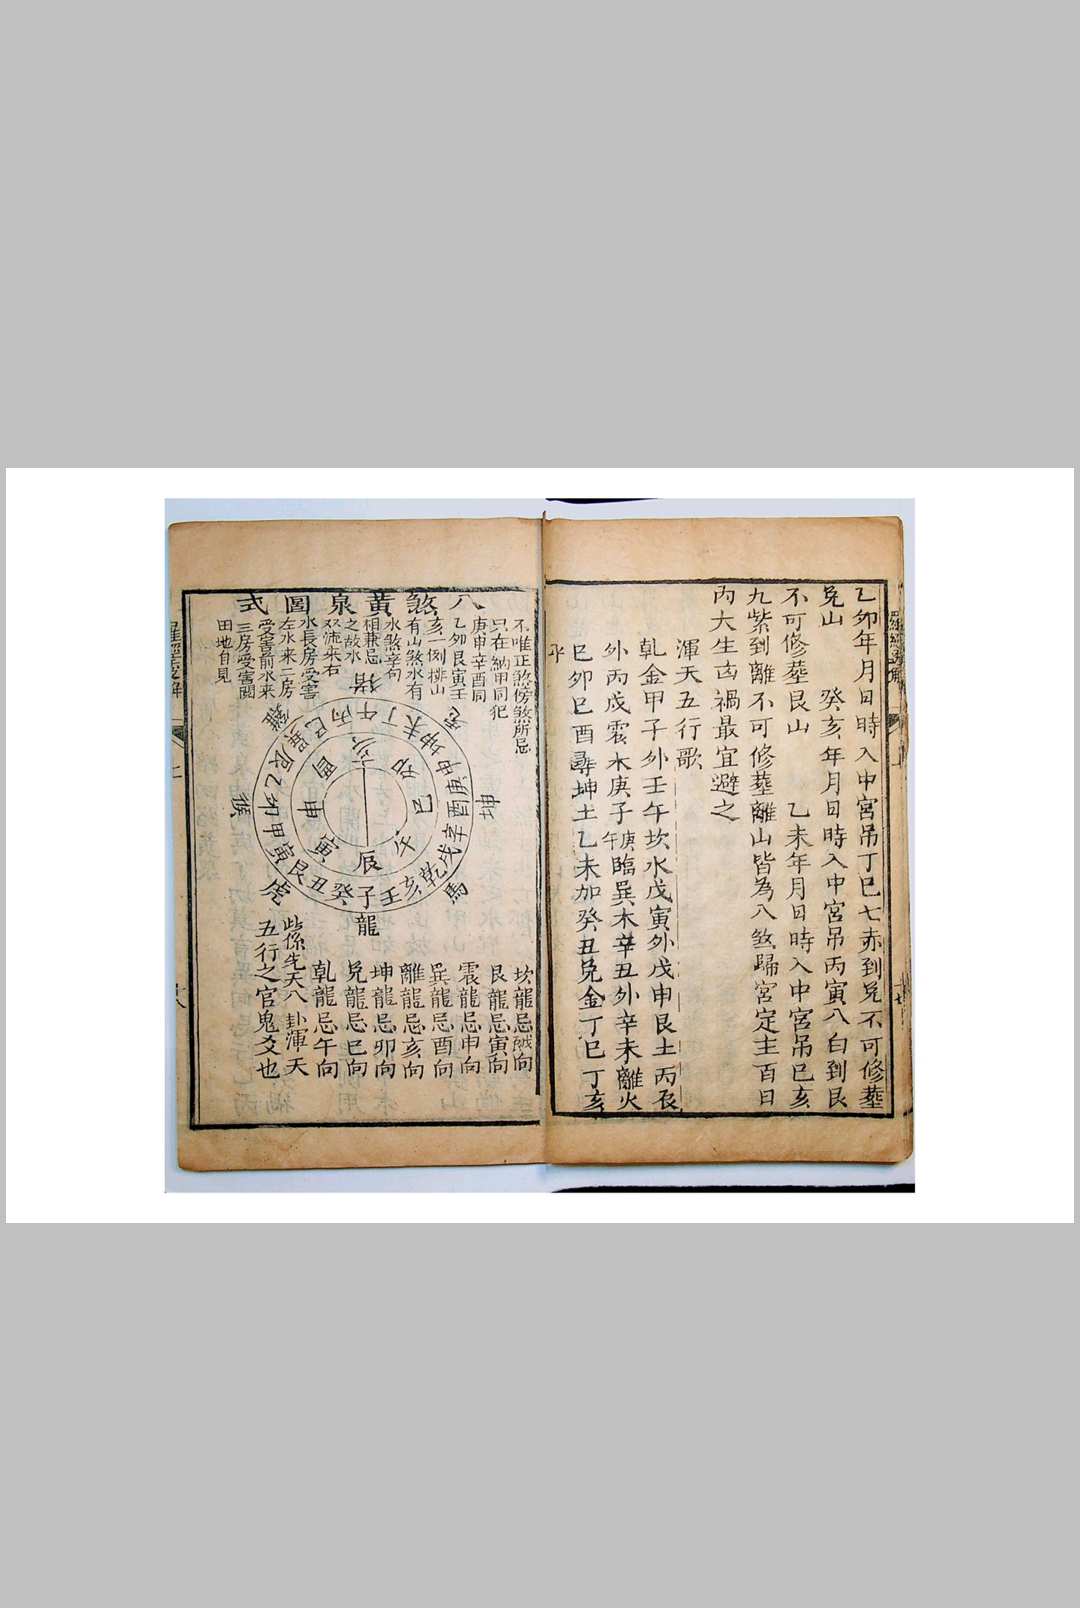 乙卯年月日時入中宮吊丁巳七赤到兌不可修塟
兌山 癸亥年月日時入中宮吊丙寅八白到艮
不可修塟艮山 乙未年月日時入中宮吊巳亥
九紫到離不可修塟離山皆為八煞歸宮定主百日
內大生凶禍最宜避之
渾天五行歌
乹金甲子外壬午坎水戊寅外戊申艮土丙辰
外丙戌震木庚子庚午臨巽木辛丑外辛未離火
巳夘巳酉尋坤土乙未加癸丑兌金丁巳丁亥
平
八煞黃泉圖式
不唯正煞傍煞所忌
只在納甲同犯
庚申辛酉同
乙夘艮寅壬
亥一例推山
有山煞水有
水煞辛向
相兼忌
之故水
双流來右
水長房受害
左水來二房
受害前水來
三房受害闗
田地自見
猪 兔 坤 馬 龍 虎 猴 雞
午丁未坤申庚酉辛戌乾亥壬子癸丑艮寅甲夘乙辰巽巳丙
亥 卯 巳 午 辰 寅 申 酉
坎龍忌向
艮龍忌寅向
震龍忌申向
巽龍忌酉向
離龍忌亥向
坤龍忌卯向
兌龍忌巳向
乹龍忌午向
此係先天八卦渾天
五行之官鬼爻也